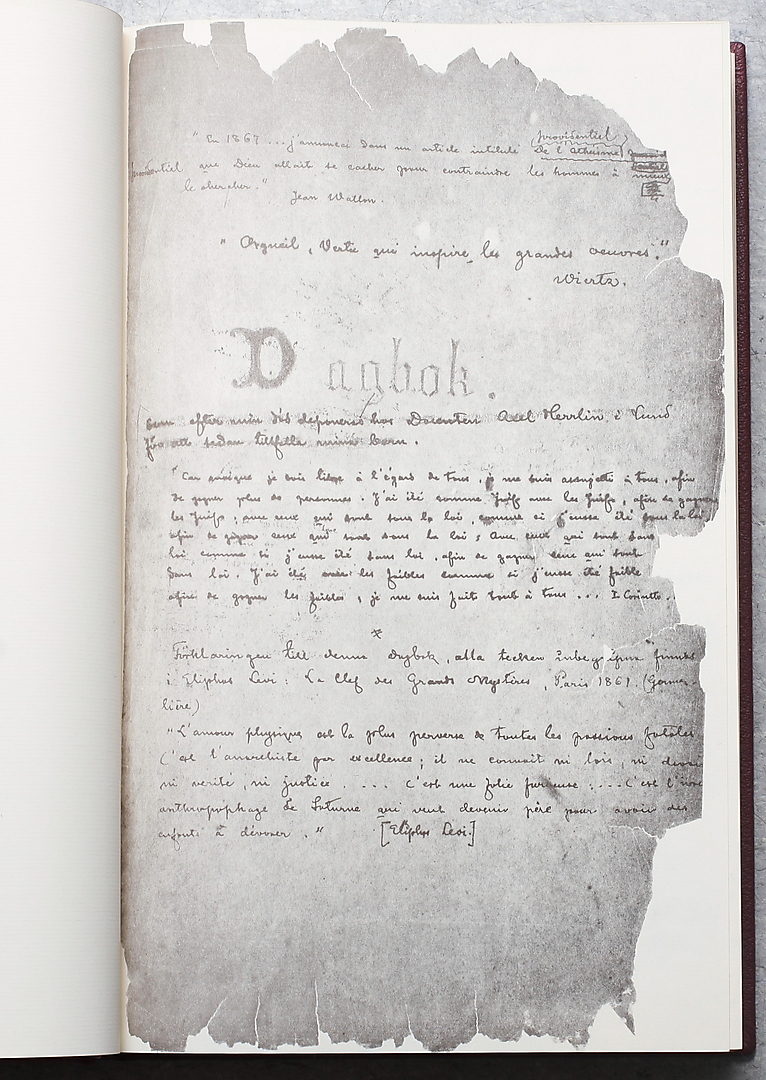 "En 1867 ... j'annoncai dans un article intitulé De l'athéisme
providentiel
providentiel que Dieu allait se cacher pour contraindre les hommes à mieux
le chercher." Jean Wallon.
"Orgueil, Vertu qui inspire les grandes oeuvres."
Wiertz.
Dagbok.
som efter min död deponeras hos Docenten Axel Herrlin i Lund
för att sedan tillfalla mina barn.
"Car quoique je sois libre à l'égard de tous, je me suis assujetti à tous, afin
de gagner plus de personnes. J'ai été comme Juif avec les Juifs, afin de gagner
les Juifs; avec ceux qui sont sous la loi, comme si j'eusse été sous la loi
afin de gagner ceux qui sont sous la loi; avec ceux qui sont sans
loi comme si j'eusse été sans loi, afin de gagner ceux qui sont
sans loi. J'ai été avec les faibles comme si j'eusse été faible
afin de gagner les faibles, je me suis fait tout à tous ... I Corinth.
Förklaringen till denna dagbok, alla tecken inbegripna finnes
i Eliphas Levi: La Clef des Grands Mystères, Paris 1861. (Germer-
lière)
"L'amour physique est la plus perverse de toutes les passions fatales
C'est l'anarchiste par excellence; il ne connait ni lois, ni devoir
ni verité, ni justice. ... C'est une folie furieuse. ... C'est l'
anthropophage de Saturne qui veut devenir père pour avoir des
enfants à dévorer." [Eliphas Levi.]